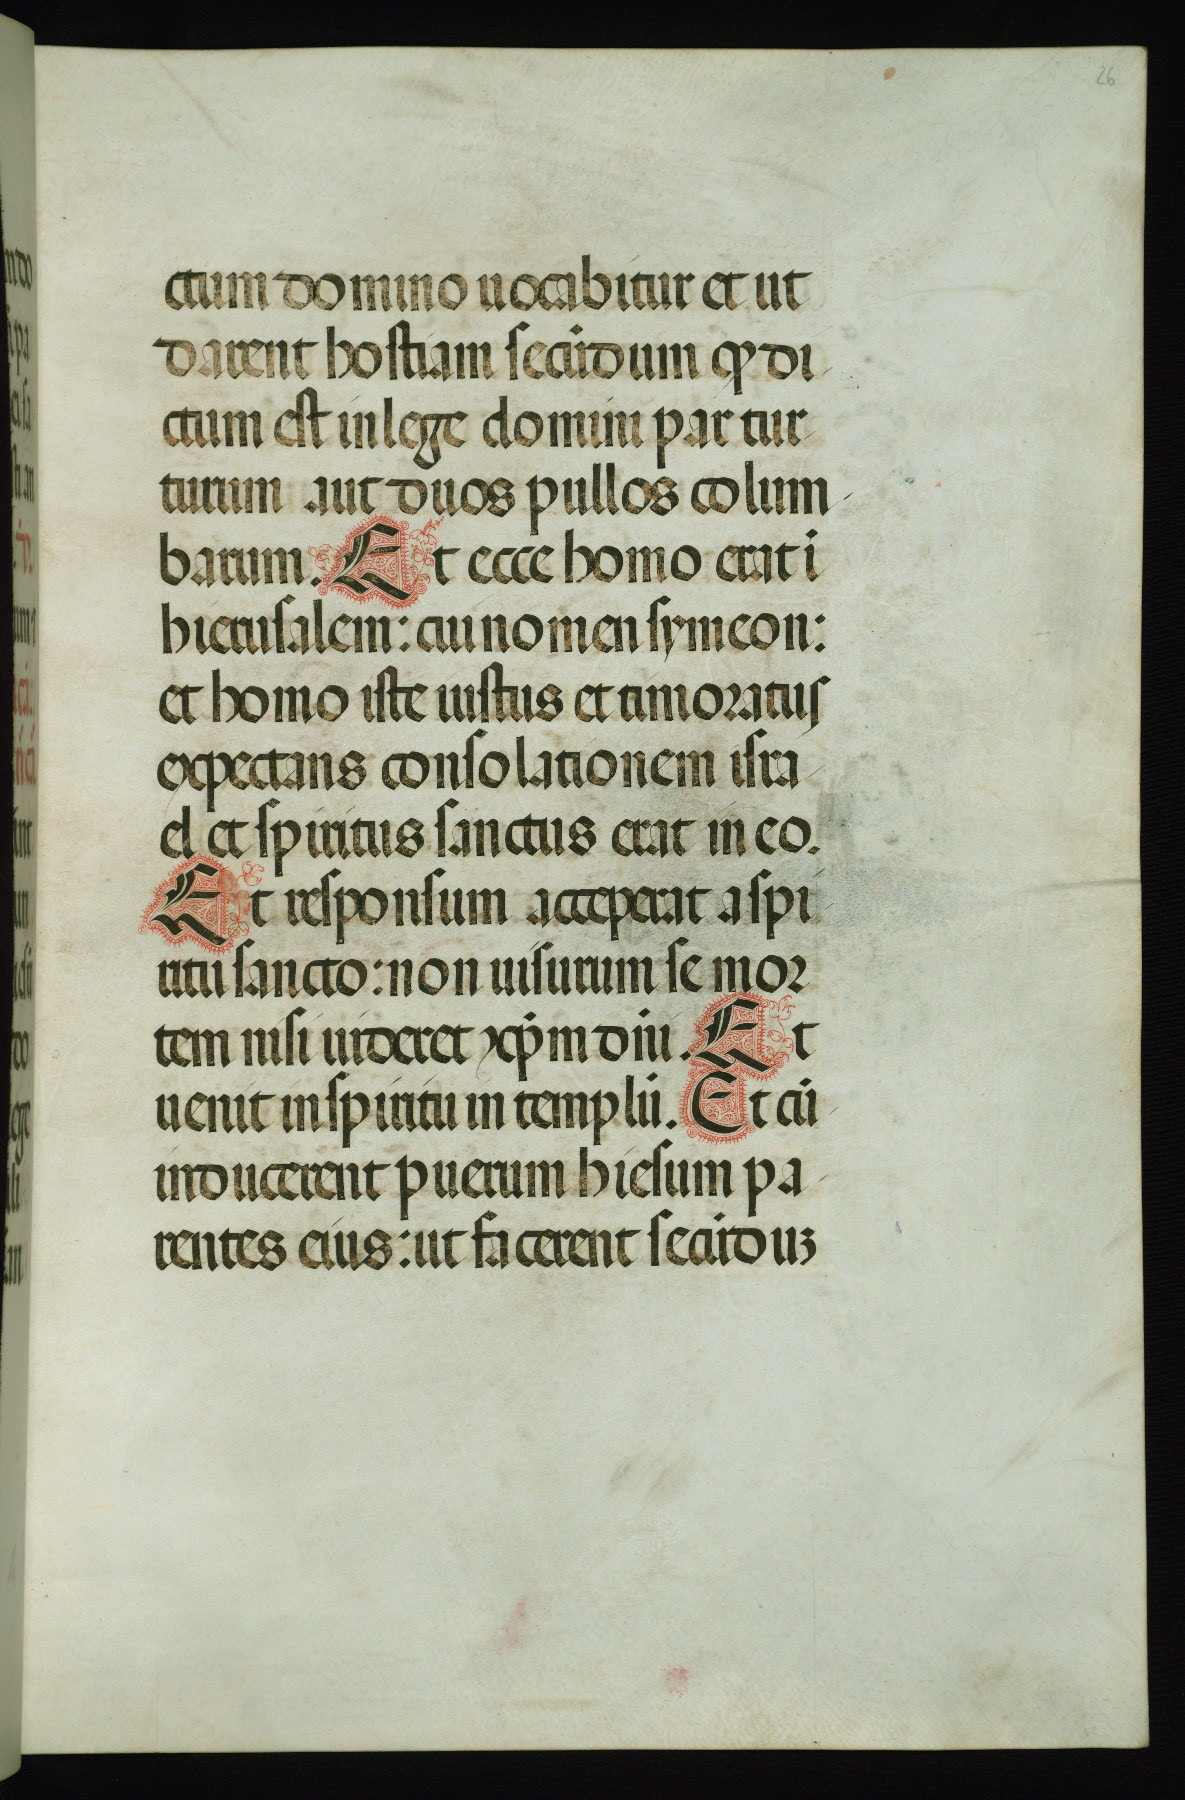 26
ctum domino uocabitur et ut
darent hostiam secūdum qđ di
ctum est in lege domini par tur
turum aut duos pullos colum
barum. Et ecce homo erat ī
hierusalem: cui nomen symeon:
et homo iste iustus et timoratus
expectans consolationem isra
el et spiritus sanctus erat in eo.
Et responsum acceperat a spi
ritu sancto: non uisurum se mor
tem nisi uideret xp̄m dn̄i. Et
uenit in spiritu in templū. Et cū
inducerent puerum hiesum pa
rentes eius: ut facerent secūduꝫ